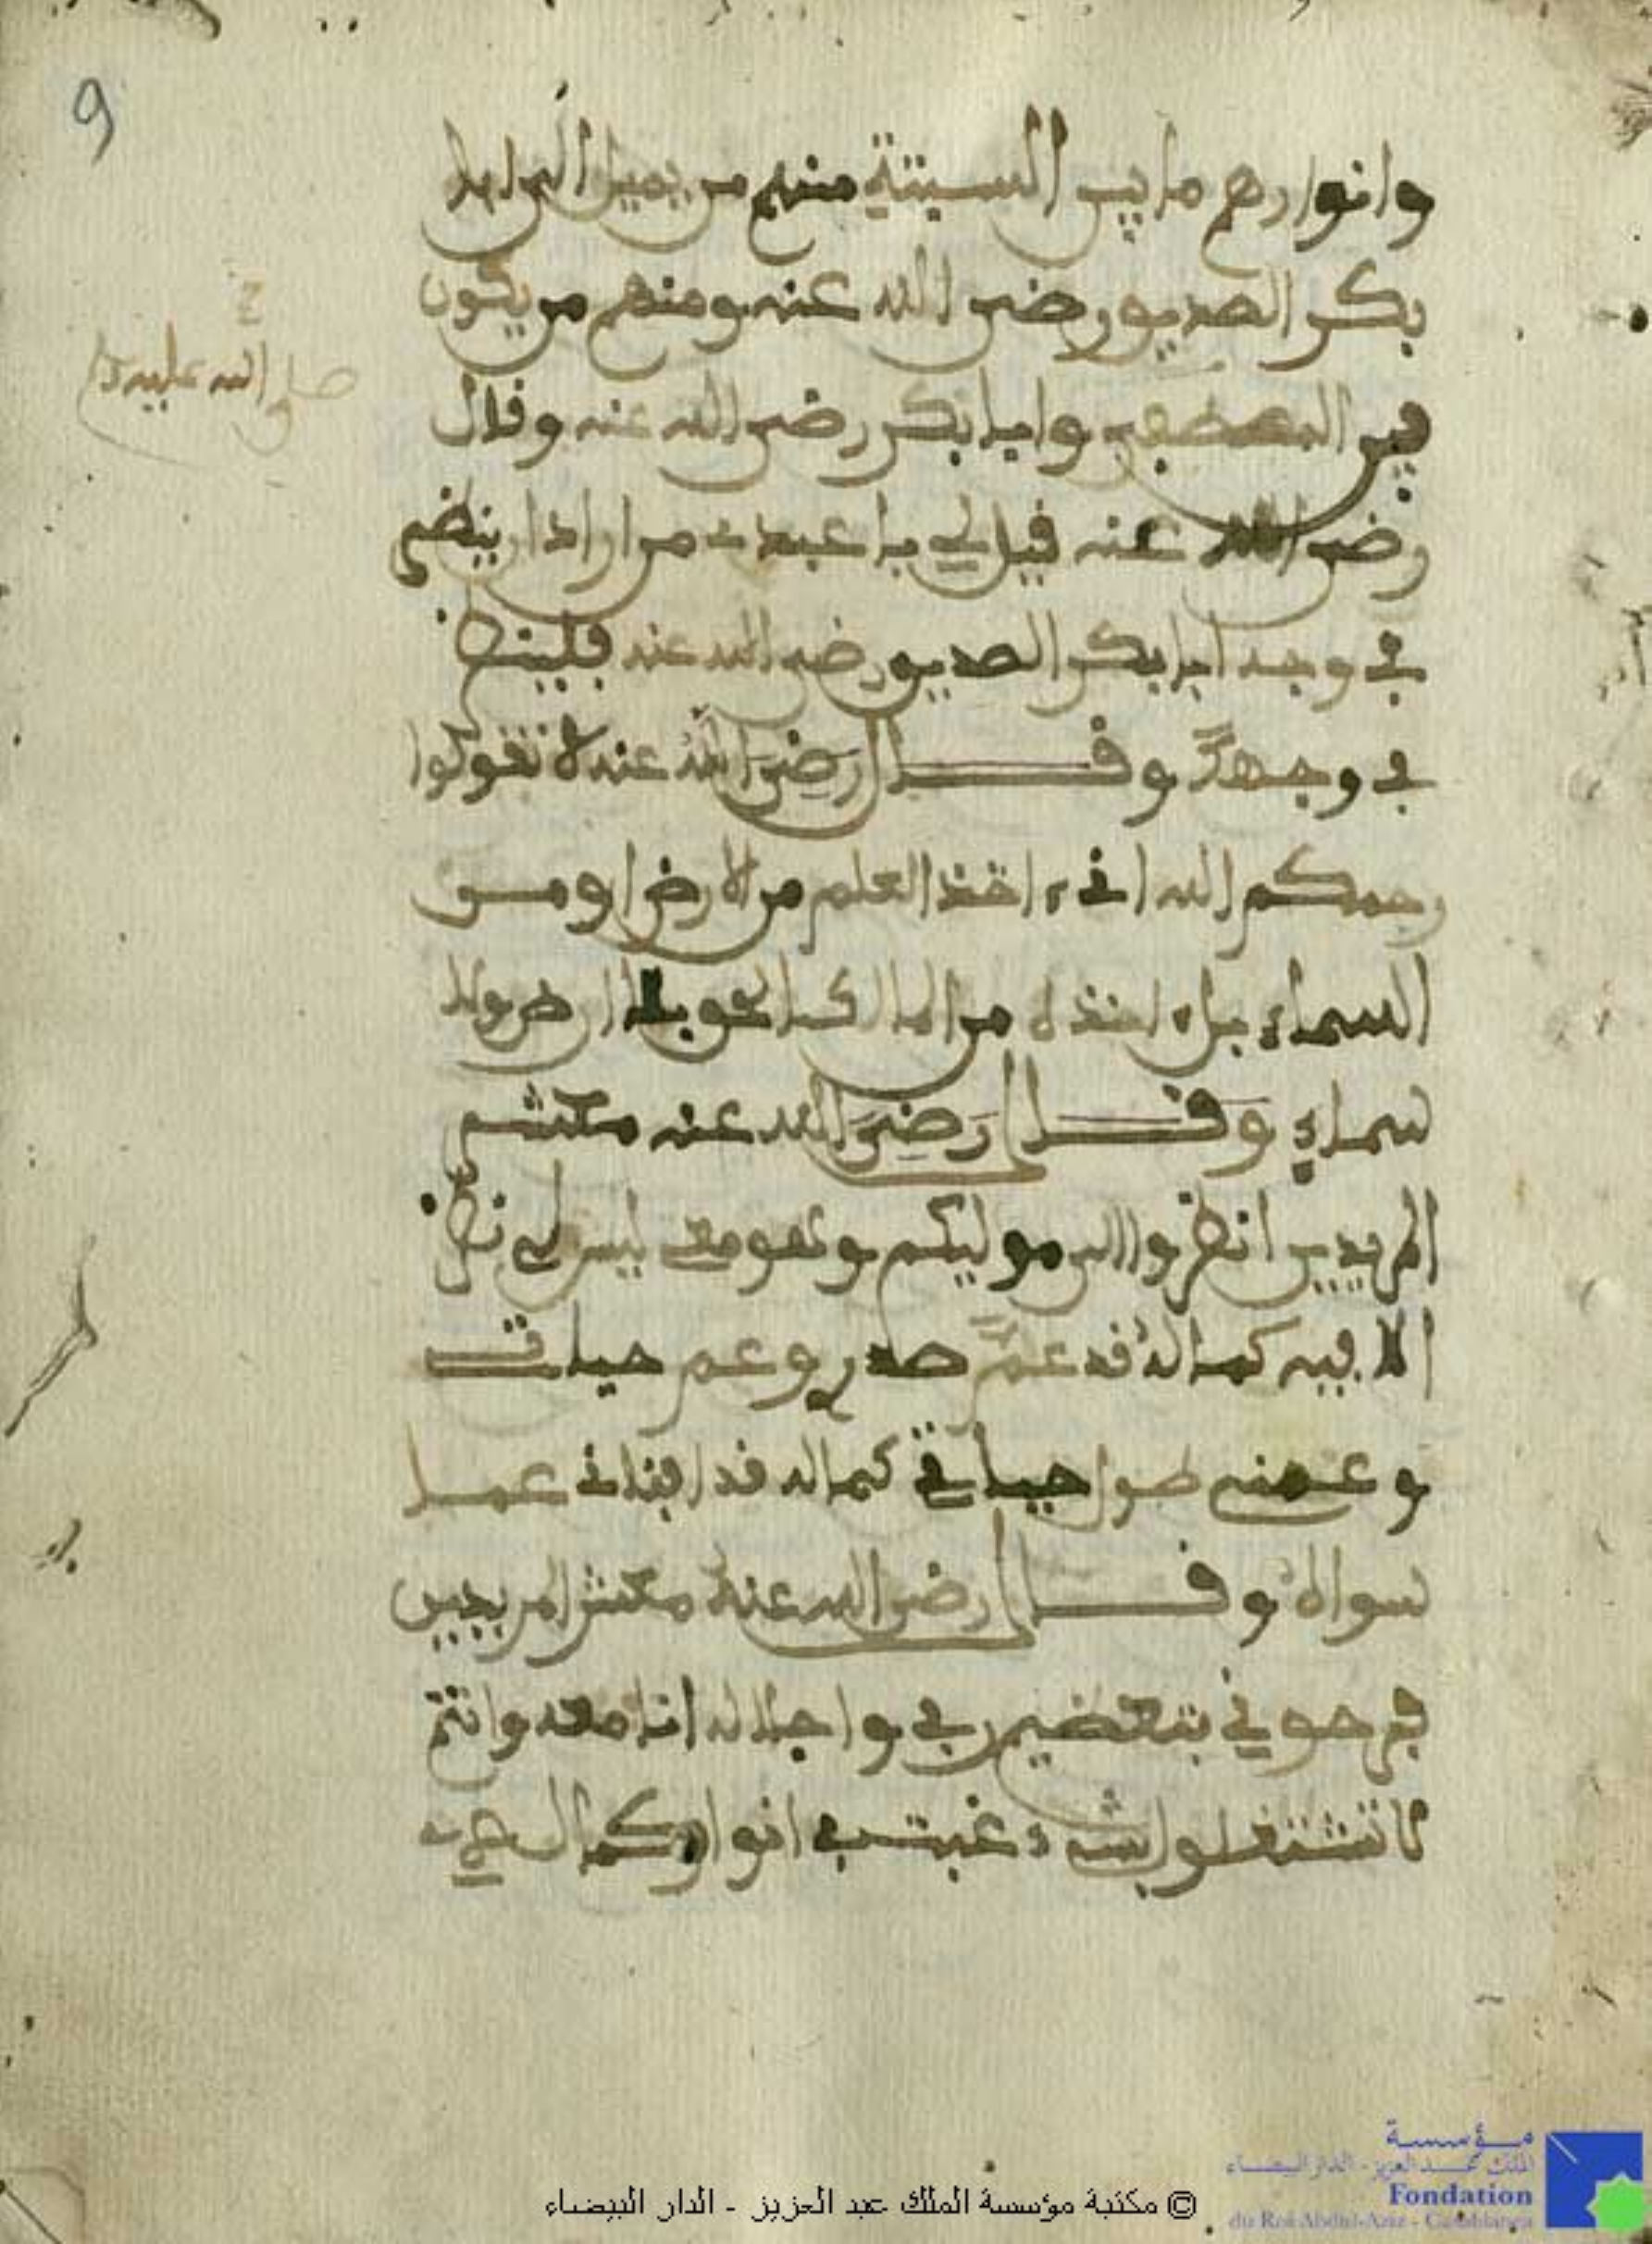 9
وانوارهم ما بين الستة منهم من يميل الى ابا
بكر الصديق رضي الله عنه ومنهم من يكون
بين المصطفى وابا بكر رضي الله عنه وقال
صلى الله عليه وسلم
رضي الله عنه قيل لي يا عبدي من اراد ان ينضر
في وجه ابا بكر الصديق رضي الله عنه فلينظر
في وجهك وقال رضي الله عنه لا تقولوا
رحمكم الله اني ءاخذ العلم من الارض او من
السماء بل ءاخذه من المالك الحق بلا ارض ولا
سماء وقال رضي الله عنه معشر
المريدين انظروا الى موليكم وتقومعي ليس لي نظر
الا فيه كماله قد عمر صدري وعم حياتي
وعمني طول حياتي كماله قد افناني عما
سواه وقال رضي الله عنه معشر المريدين
فرحوني بتعضيم ربي واجلاله انا معه وانتم
لا تشتغلوا بشيء غبت في انوار كمال
© مكتبة مؤسسة الملك عبد العزيز - الدار البيضاء
مؤسسة
الملك عبد العزيز - الدار البيضاء
Fondation
du Roi Abdul-Aziz - Casablanca